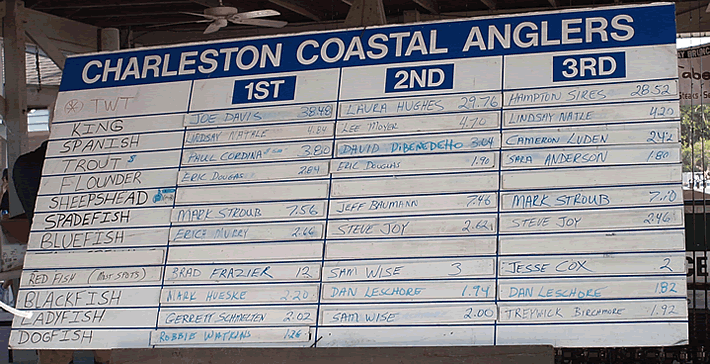 CHARLESTON COASTAL ANGLERS
1ST 2ND 3RD
TWT JOE DAVIS 38.48 LAURA HUGHES 29.76 HAMPTON SIRES 28.52
KING LINDSAY NATALE 4.84 LEE MOYER 4.70 LINDSAY NATLE 4.20
SPANISH PAUL CORDINA 3.80 DAVID DIBENEDETTO 3.04 CAMERON LUDEN 2.42
TROUT ERIC DOUGAS 2.84 ERIC DOUGLAS 1.90 SARA ANDERSON 1.80
FLOUNDER
SHEEPSHEAD MARK STROUB 7.56 JEFF BAUMANN 7.46 MARK STROUB
SPADEFISH ERICE MURRY 2.66 STEVE JOY 2.62 STEVE JOY 2.46
BLUEFISH
RED FISH (MOST SPOTS) BRAD FRAZIER 12 SAM WISE 3 JESSE COX 2
BLACKFISH MARK HUESKE 2.20 DAN LESCHORE 1.94 DAN LESCHORE 1.82
LADYFISH GERRETT SCHMELTEN 2.02 SAM WISE 2.00 TREYWICK BIRCHMORE 1.92
DOGFISH ROBBIE WATKINS 1.26